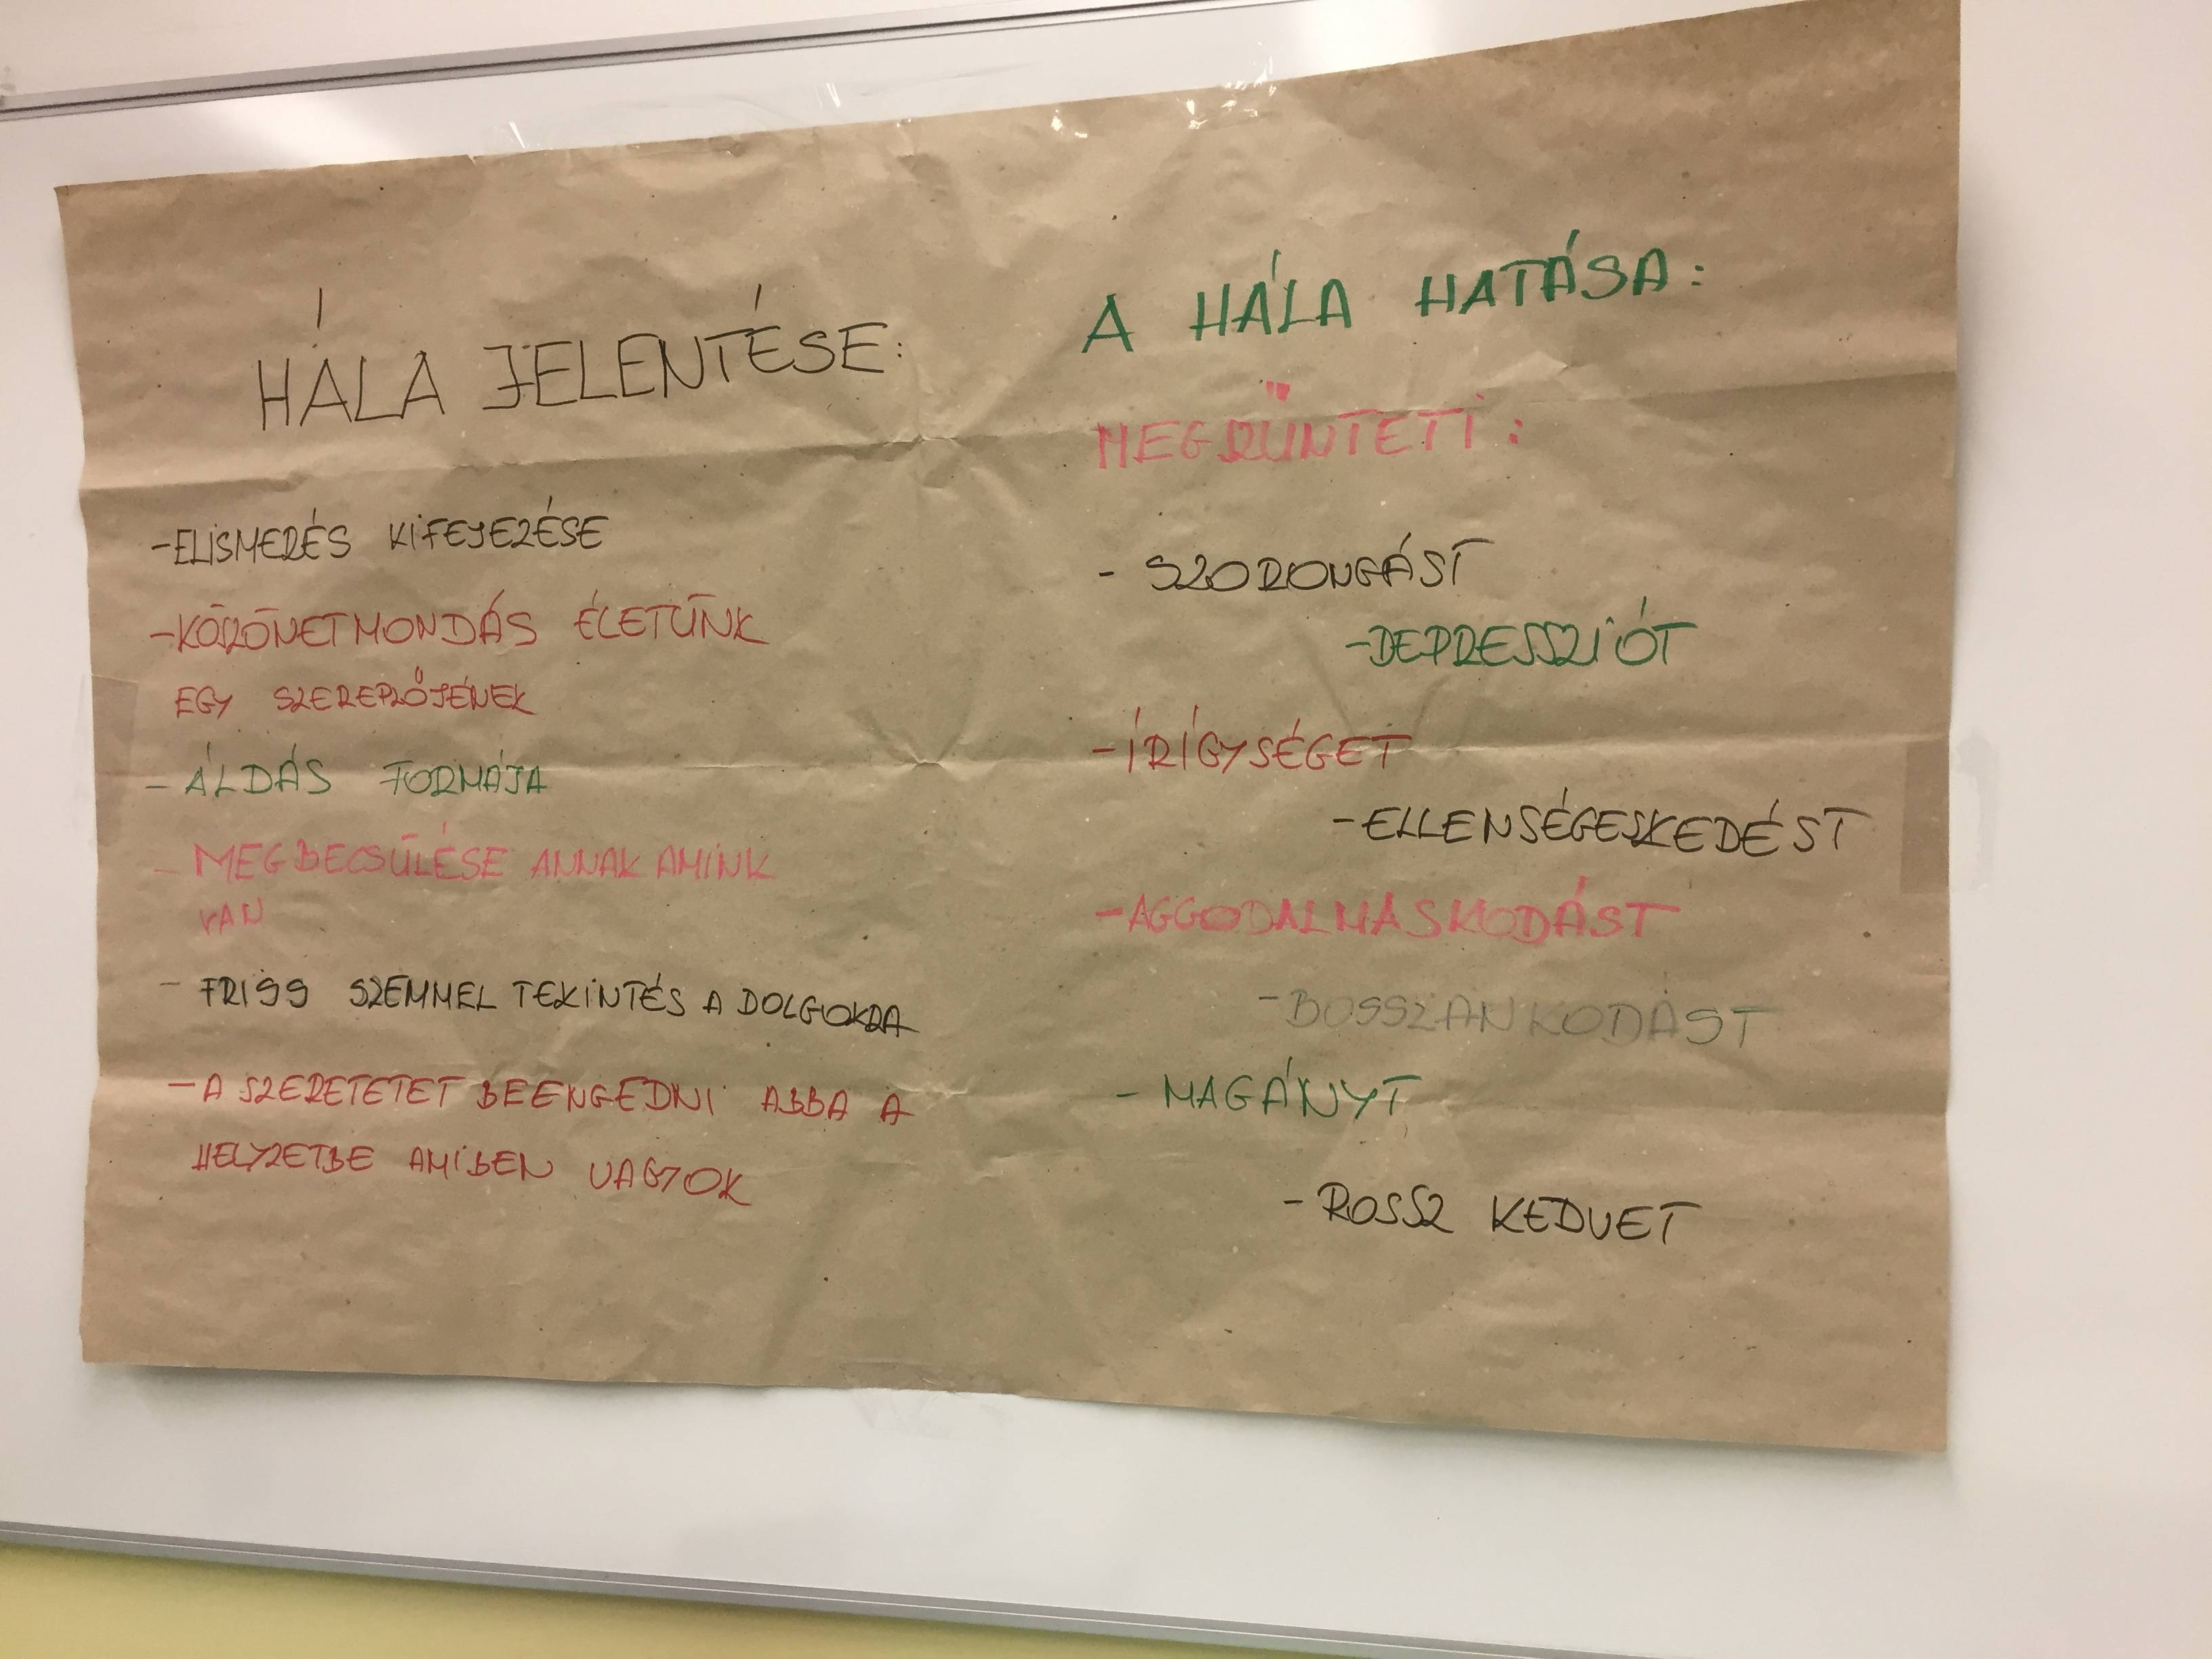 HÁLA JELENTÉSE:
-ELISMERÉS KIFEJEZÉSE
-KÖSZÖNETMONDÁS ÉLETÜNK
EGY SZEREPLŐJÉNEK
- ÁLDÁS FORMÁJA
- MEGBECSÜLÉSE ANNAK AMINK
VAN
- FRISS SZEMMEL TEKINTÉS A DOLGOKRA
- A SZERETETET BEENGEDNI ABBA A
HELYZETBE AMIBEN VAGYOK
A HÁLA HATÁSA:
MEGSZÜNTETI:
- SZORONGÁST
-DEPRESSZIÓT
-ÍRÍGYSÉGET
-ELLENSÉGESKEDÉST
-AGGODALMASKODÁST
-BOSSZANKODÁST
- MAGÁNYT
- ROSSZ KEDVET